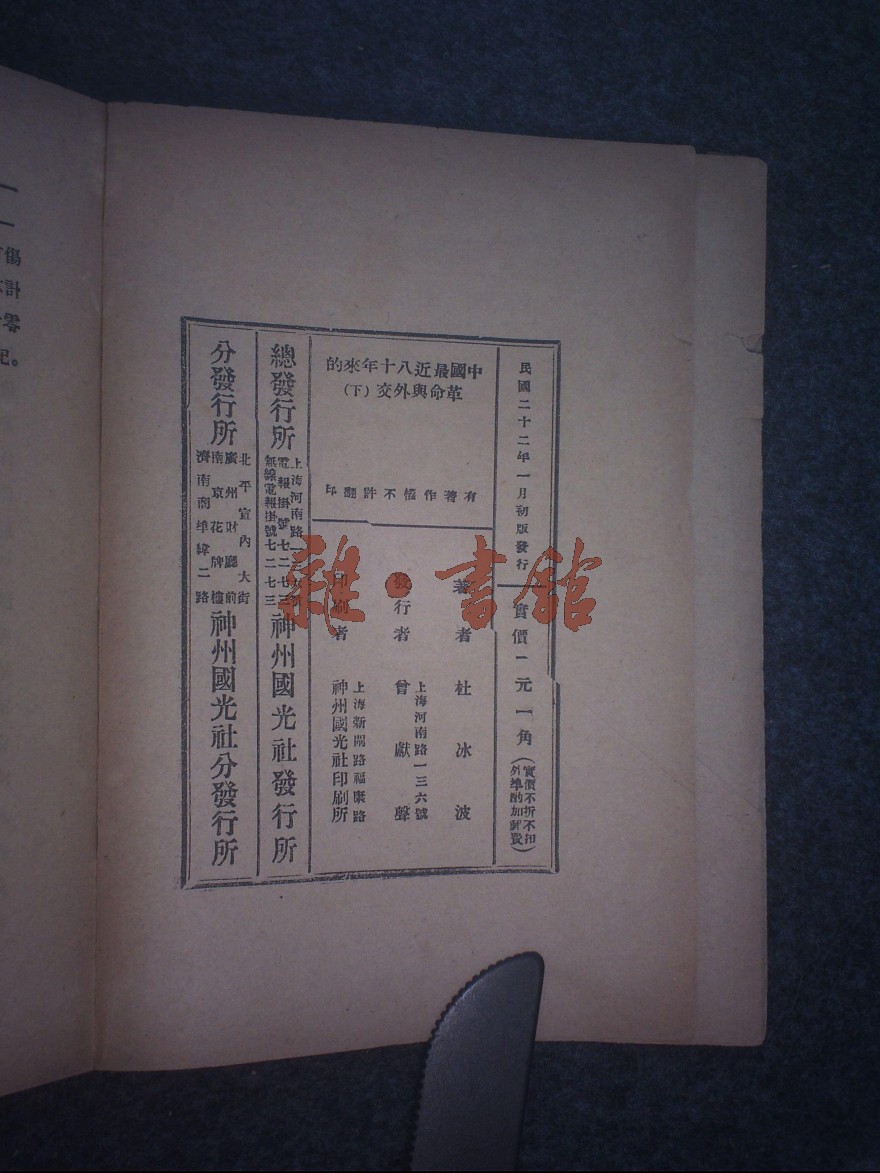 民國二十二年一月初版發行
實價一元一角（實價不折不扣
外埠酌加郵費）
中國最近八十年來的
革命與外交（下）
有著作權不許翻印
著者 杜冰波
發行者 曾獻聲
上海河南路一三六號
印刷者 神州國光社印刷所
上海新閘路福康路
總發行所
上海河南路
電報掛號七二七三
無線電報掛號七二七三
神州國光社發行所
分發行所
北平宣內大街
廣州財廳前
南京花牌樓
濟南商埠緯二路
神州國光社分發行所
雜·書館
傷
計
零
記。